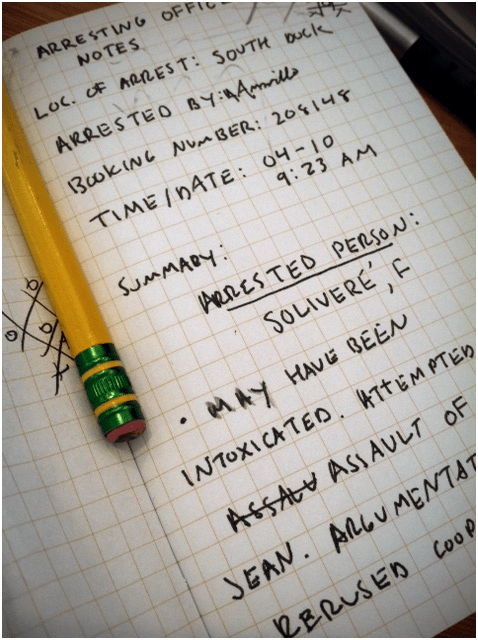 ARRESTING OFFIC
NOTES
LOC. OF ARREST: SOUTH DUCK
ARRESTED BY:
BOOKING NUMBER: 208148
TIME/DATE: 04-10
9:23 AM
SUMMARY:
ARRESTED PERSON:
SOLIVERÉ, F
• MAY HAVE BEEN
INTOXICATED. ATTEMPTED
ASSAU ASSAULT OF
JEAN. ARGUMENTAT
RERUSED COOP